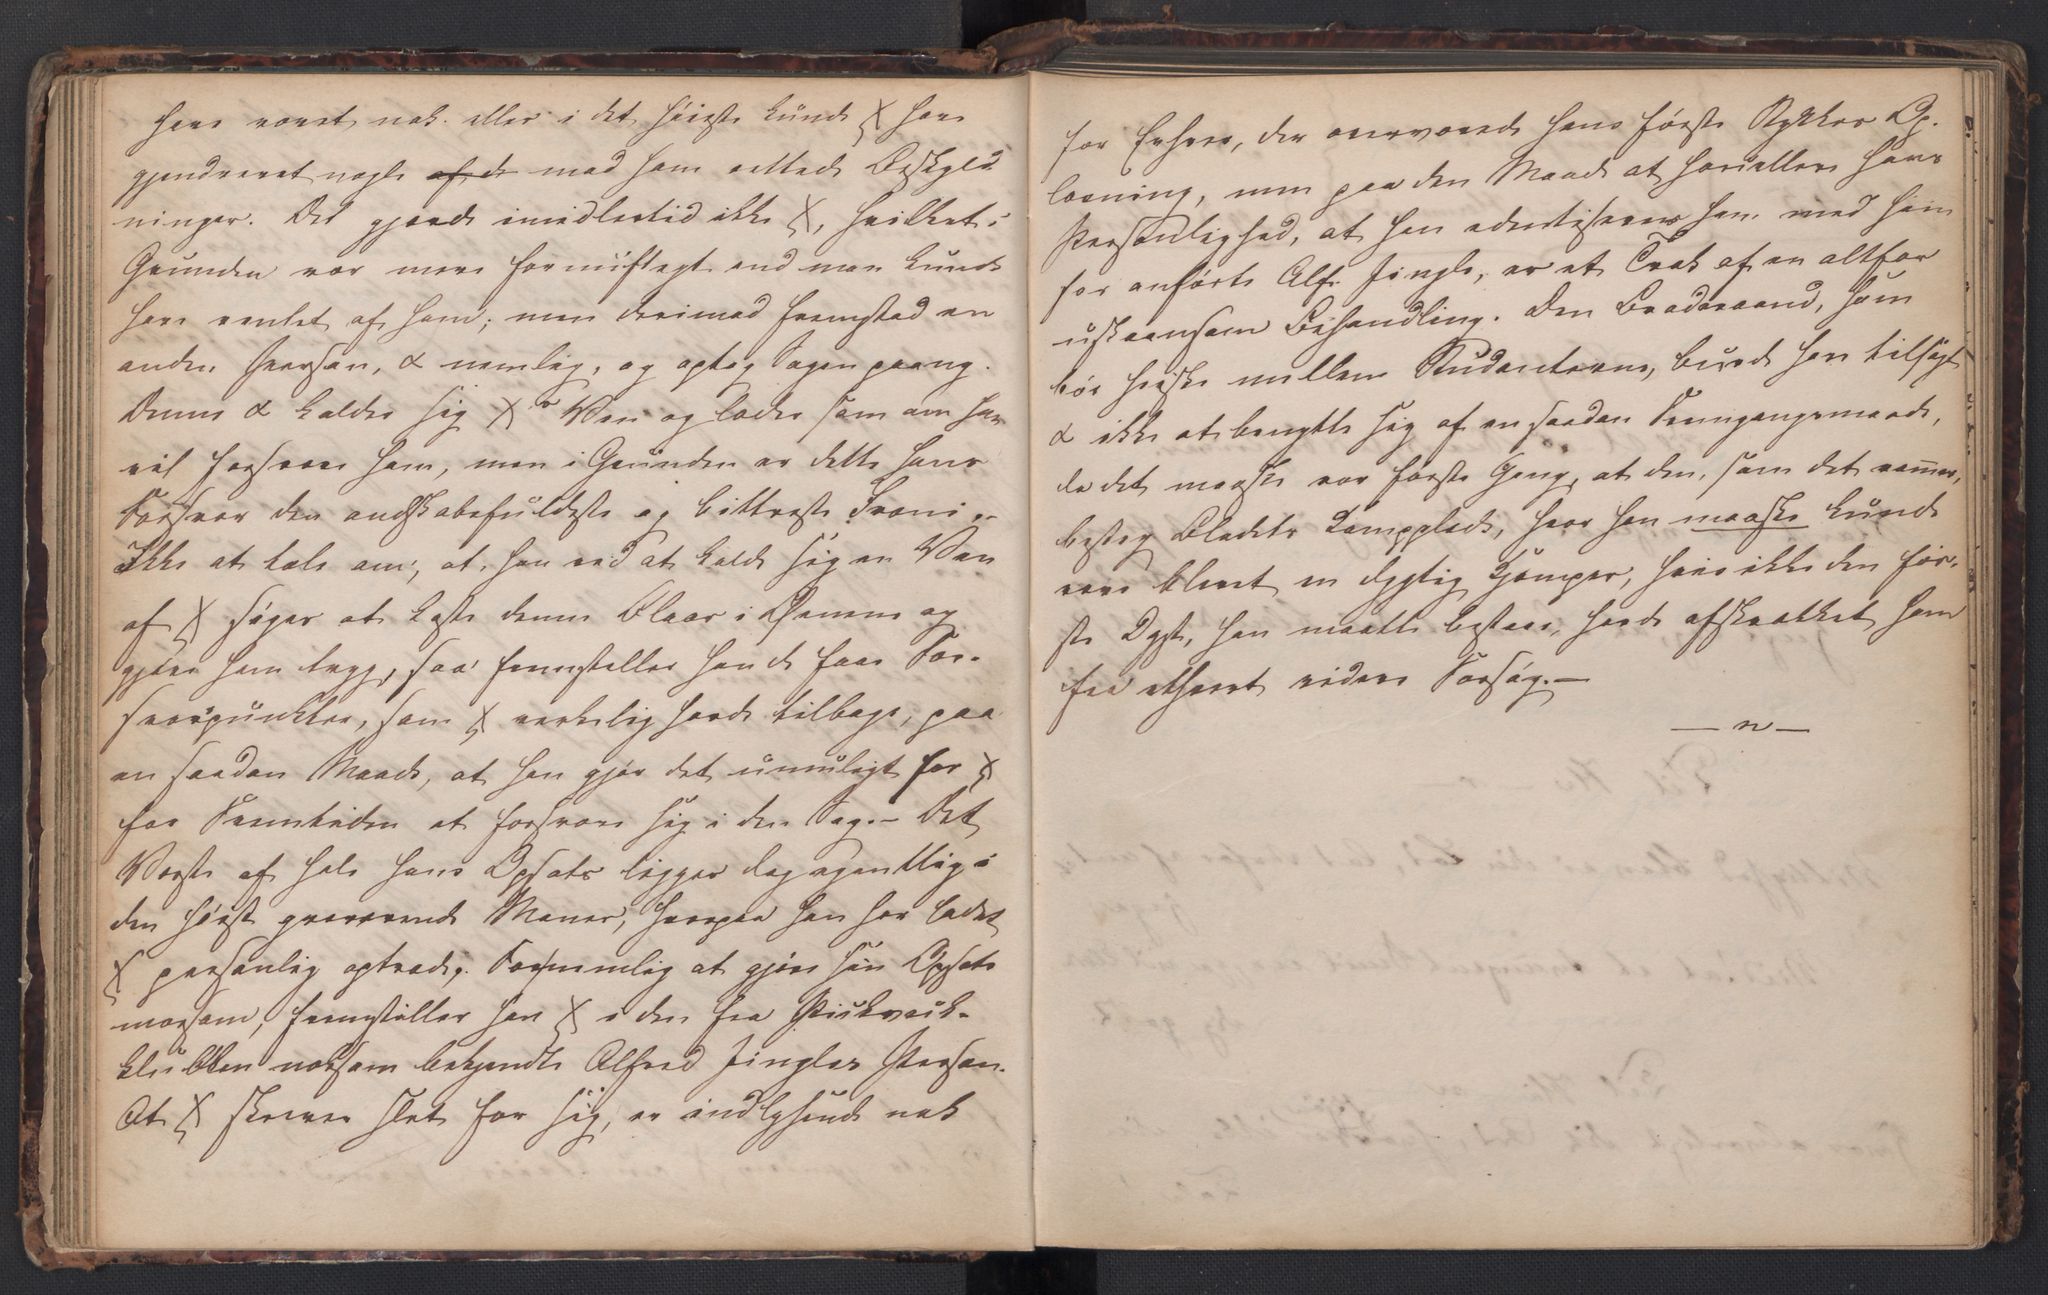 have været nok. eller i det høieste kunde X have
gjendrevet nogle af de mod ham rettede Beskyld-
ninger. Det gjorde imidlertid ikke X, hvilket i
Grunden var mere fornuftigt end man kunde
have ventet af ham; men derimod fremstod en
anden Person, α nemlig, og optog Sagen paany.
Denne α kalder sig X's Ven og lader som om han
vil forsvare ham, men i Grunden er dette hans
Forsvar den ondskabsfuldeste og bittreste Ironi.-
Ikke at tale om, at han ved at kalde sig en Ven
af X søger at kaste denne Blaar i Øinene og
gjøre ham tryg, saa fremstiller han de faae For-
svarspunkter, som X virkelig havde tilbage, paa
en saadan Maade, at han gjør det umuligt for X
for Fremtiden at forsvare sig i den Sag.- Det
Værste af hele hans Opsats ligger dog egentlig i
den høist graverende Maner, hvorpaa han har ladet
X personlig optræde. Formemlig at gjøre sin Opsats
morsom, fremstiller han X i den fra Pickwick-
klubben noksom bekjendte Alfred Jingles Person.
At X skrever slet for sig, er indlysende nok
for Enhver, der overværede hans første Stykkes Op-
læsning, men paa den Maade at harcellere hans
Personlighed, at han identificerer ham med ham
for anførte Alf. Jingle, er et Træk af en altfor
uskaansom Behandling. Den Broderaand, som
bør herske mellem Studenterne, burde han tilsagt
α ikke at benytte sig af en saadan Fremgangsmaade,
da det maaske var første Gang, at den, som det rammer,
besteg Bladets Kampplads, hvor han maaske kunde
være blevet en dygtig Kjæmper, hvis ikke den før-
ste Dyst, han maatte bestaae, havde afskrækket ham
fra ethvert videre Forsøg.-
— n —